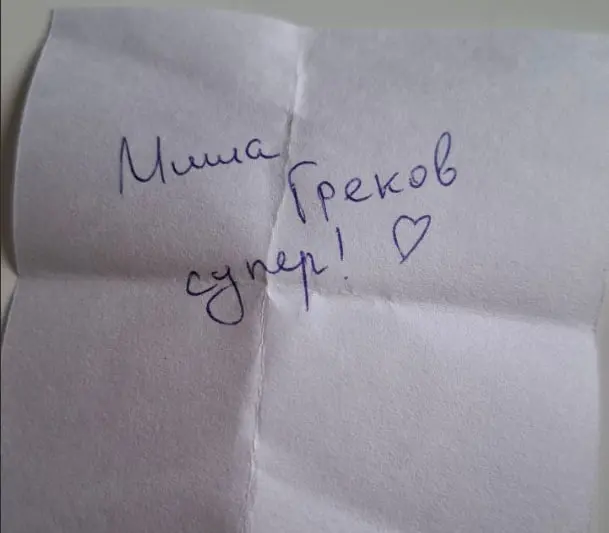 Миша
Греков
супер! ♡